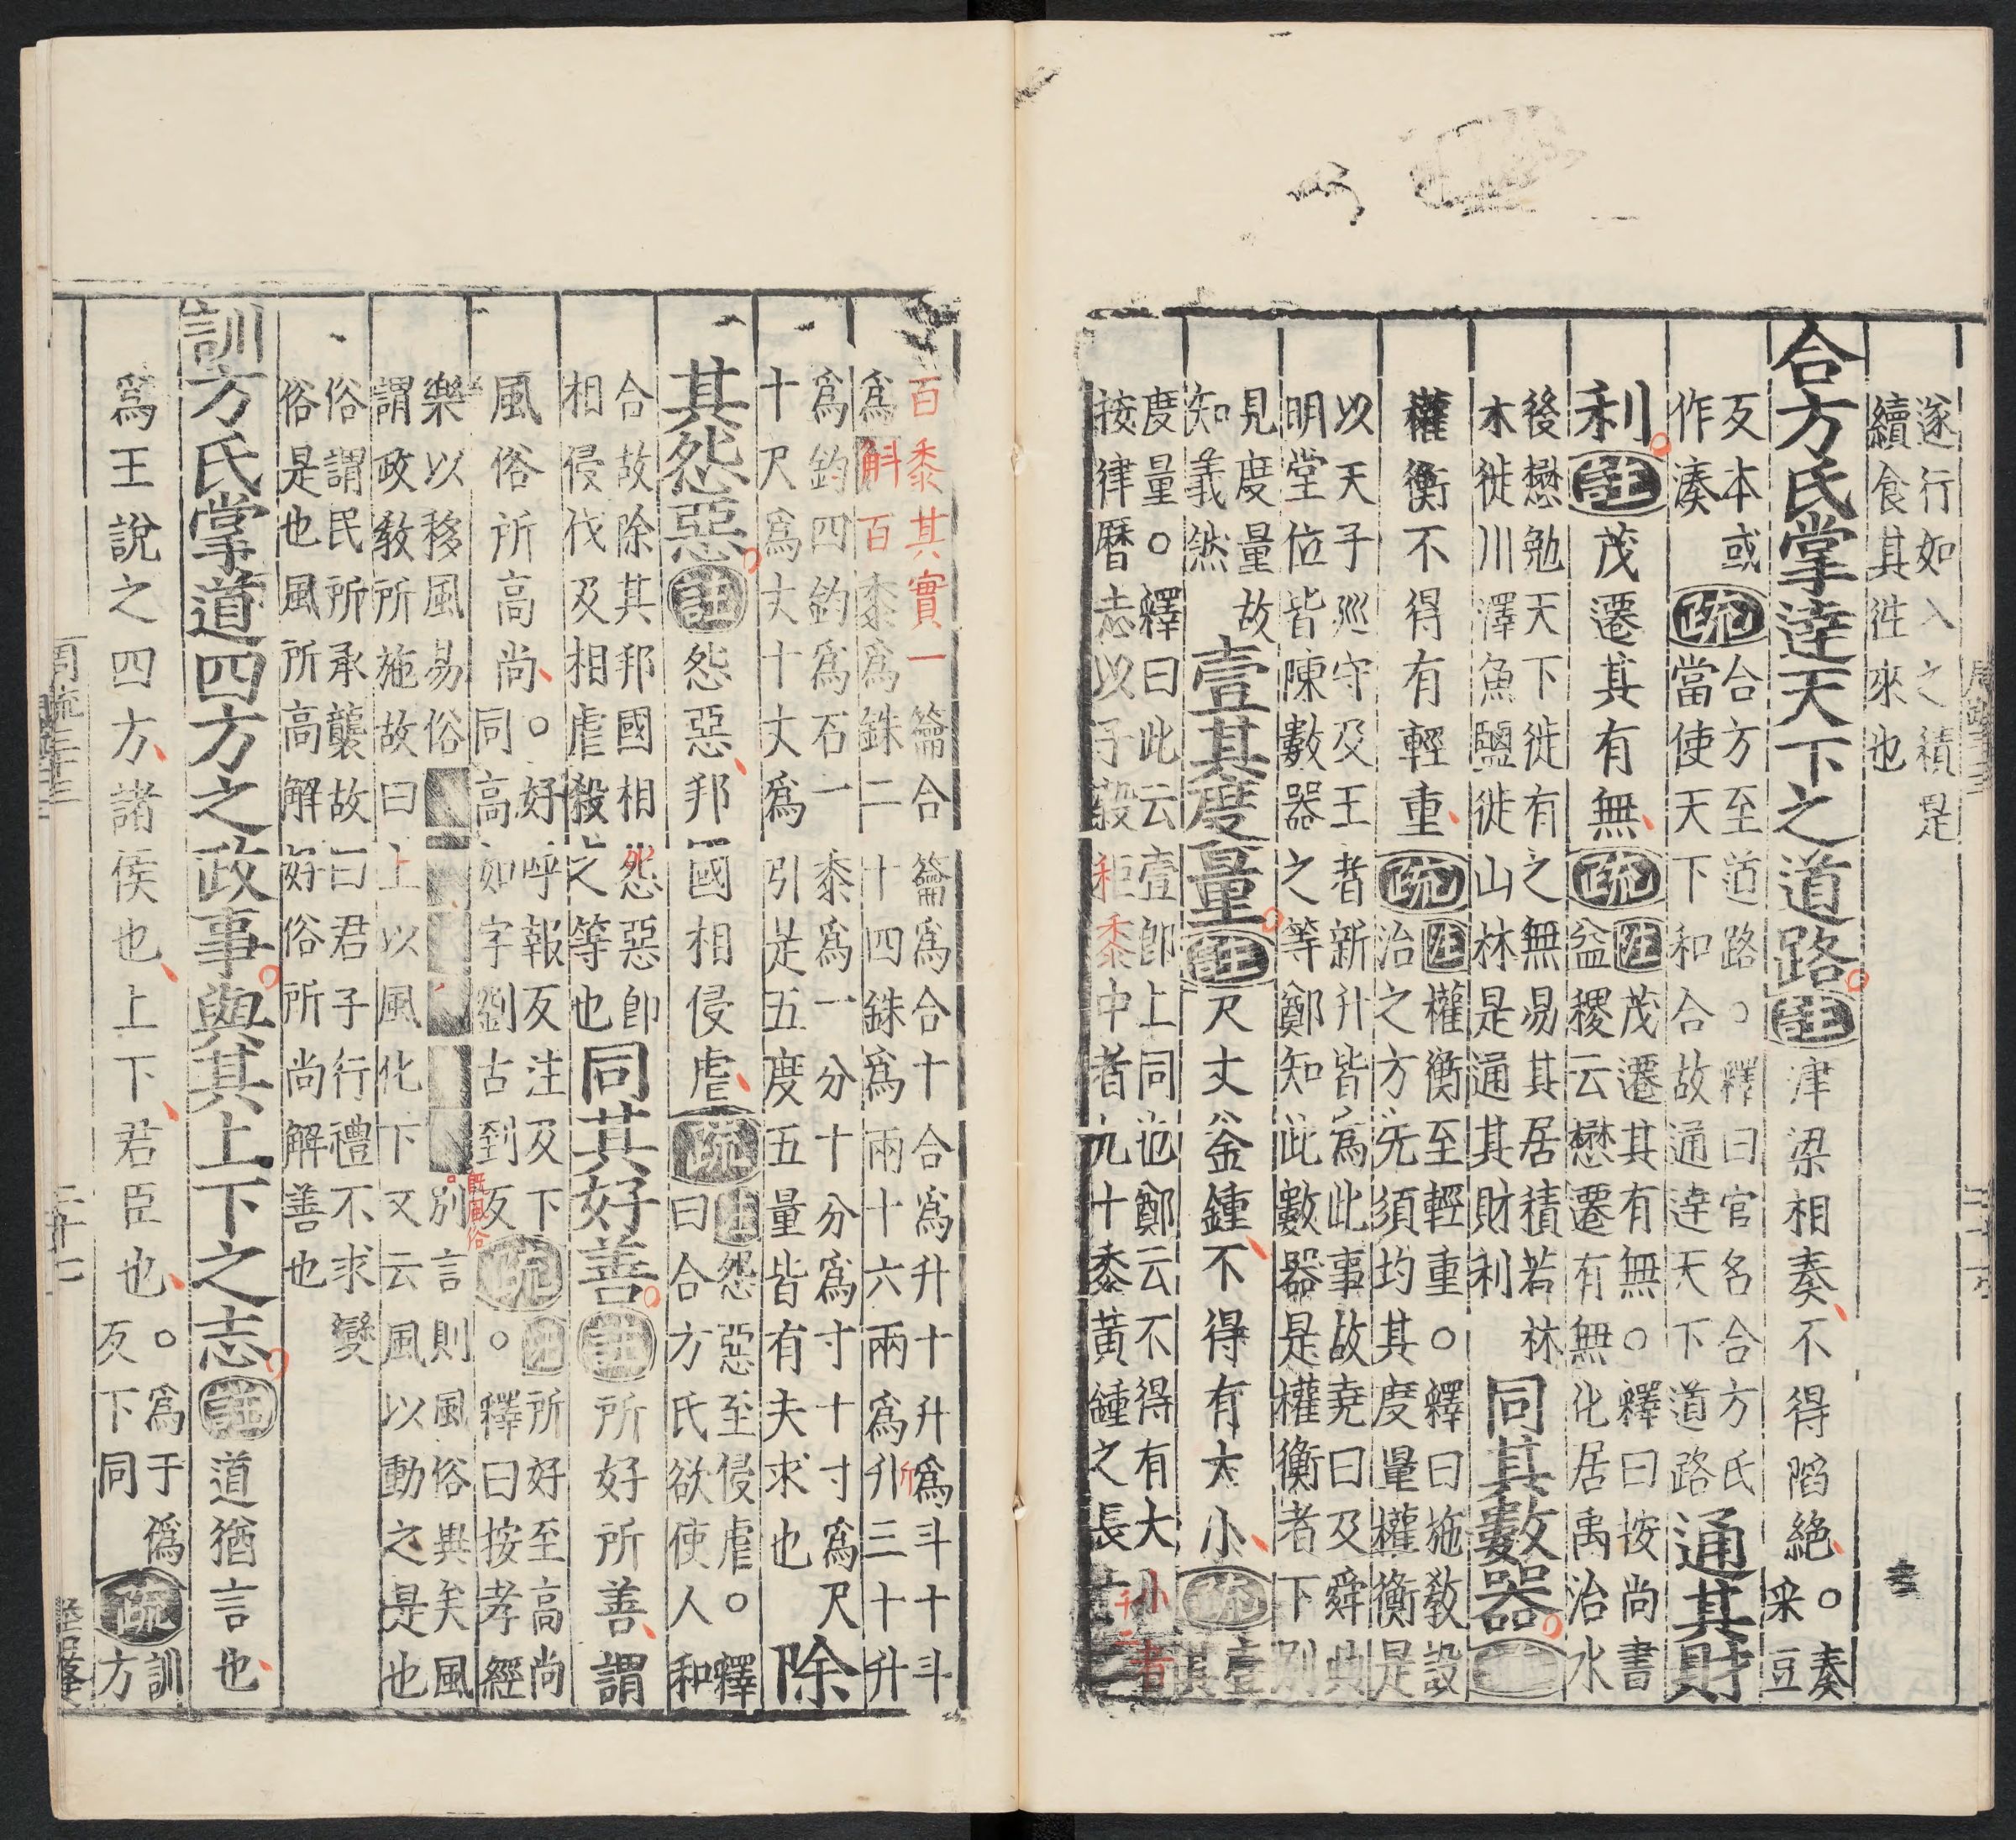 遂行如入之積是
續食其徃來也
合方氏掌達天下之道路。註津梁相奏不得陷絶。奏
采豆
反本或
作湊
疏合方至道路。釋曰官名合方氏
當使天下和合故通達天下道路
通其財
利。註茂遷其有無疏注茂遷其有無。釋曰按尚書
益稷云懋遷有無化居禹治水
後懋勉天下徙有之無易其居積若林
木徙川澤魚鹽徙山林是通其財利
同其數器。註
權衡不得有輕重疏注權衡至輕重。釋曰施教設
治之方先須均其度量權衡是
以天子巡守及王者新升皆爲此事故堯曰及舜典
明堂位皆陳數器之等鄭知此數器是權衡者下别
見度量故
知義然
壹其度量。註尺丈釜鍾不得有大小疏壹
其
度量。釋曰此云壹即上同也鄭云不得有大小者
按律曆志以子穀秬黍中者九十黍黃鍾之長千二
百黍其實一籥合籥爲合十合爲升十升爲斗十斗
爲斛百黍爲銖二十四銖爲兩十六兩爲升三十升
斤
爲鈞四鈞爲石一黍爲一分十分爲寸十寸爲尺
十尺爲丈十丈爲引是五度五量皆有夫求也
除
其怨惡。註怨惡邦國相侵虐疏注怨惡至侵虐。釋
曰合方氏欲使人和
合故除其邦國相怨惡即
相侵伐及相虐殺之等也
同其好善。註所好所善謂
風俗所高尚。好呼報反注及下
同高如字劉古到反
疏注所好至高尚
。釋曰按孝經
樂以移風易俗别言則風俗異矣風
既寅俗
謂政教所施故曰上以風化下又云風以動之是也
俗謂民所承襲故曰君子行禮不求變
俗是也風所高解好俗所尚解善也
訓方氏掌道四方之政事與其上下之志。註道猶言也
爲王說之四方諸侯也上下君臣也。爲于僞
反下同
疏訓
方
周疏三十三
二十七